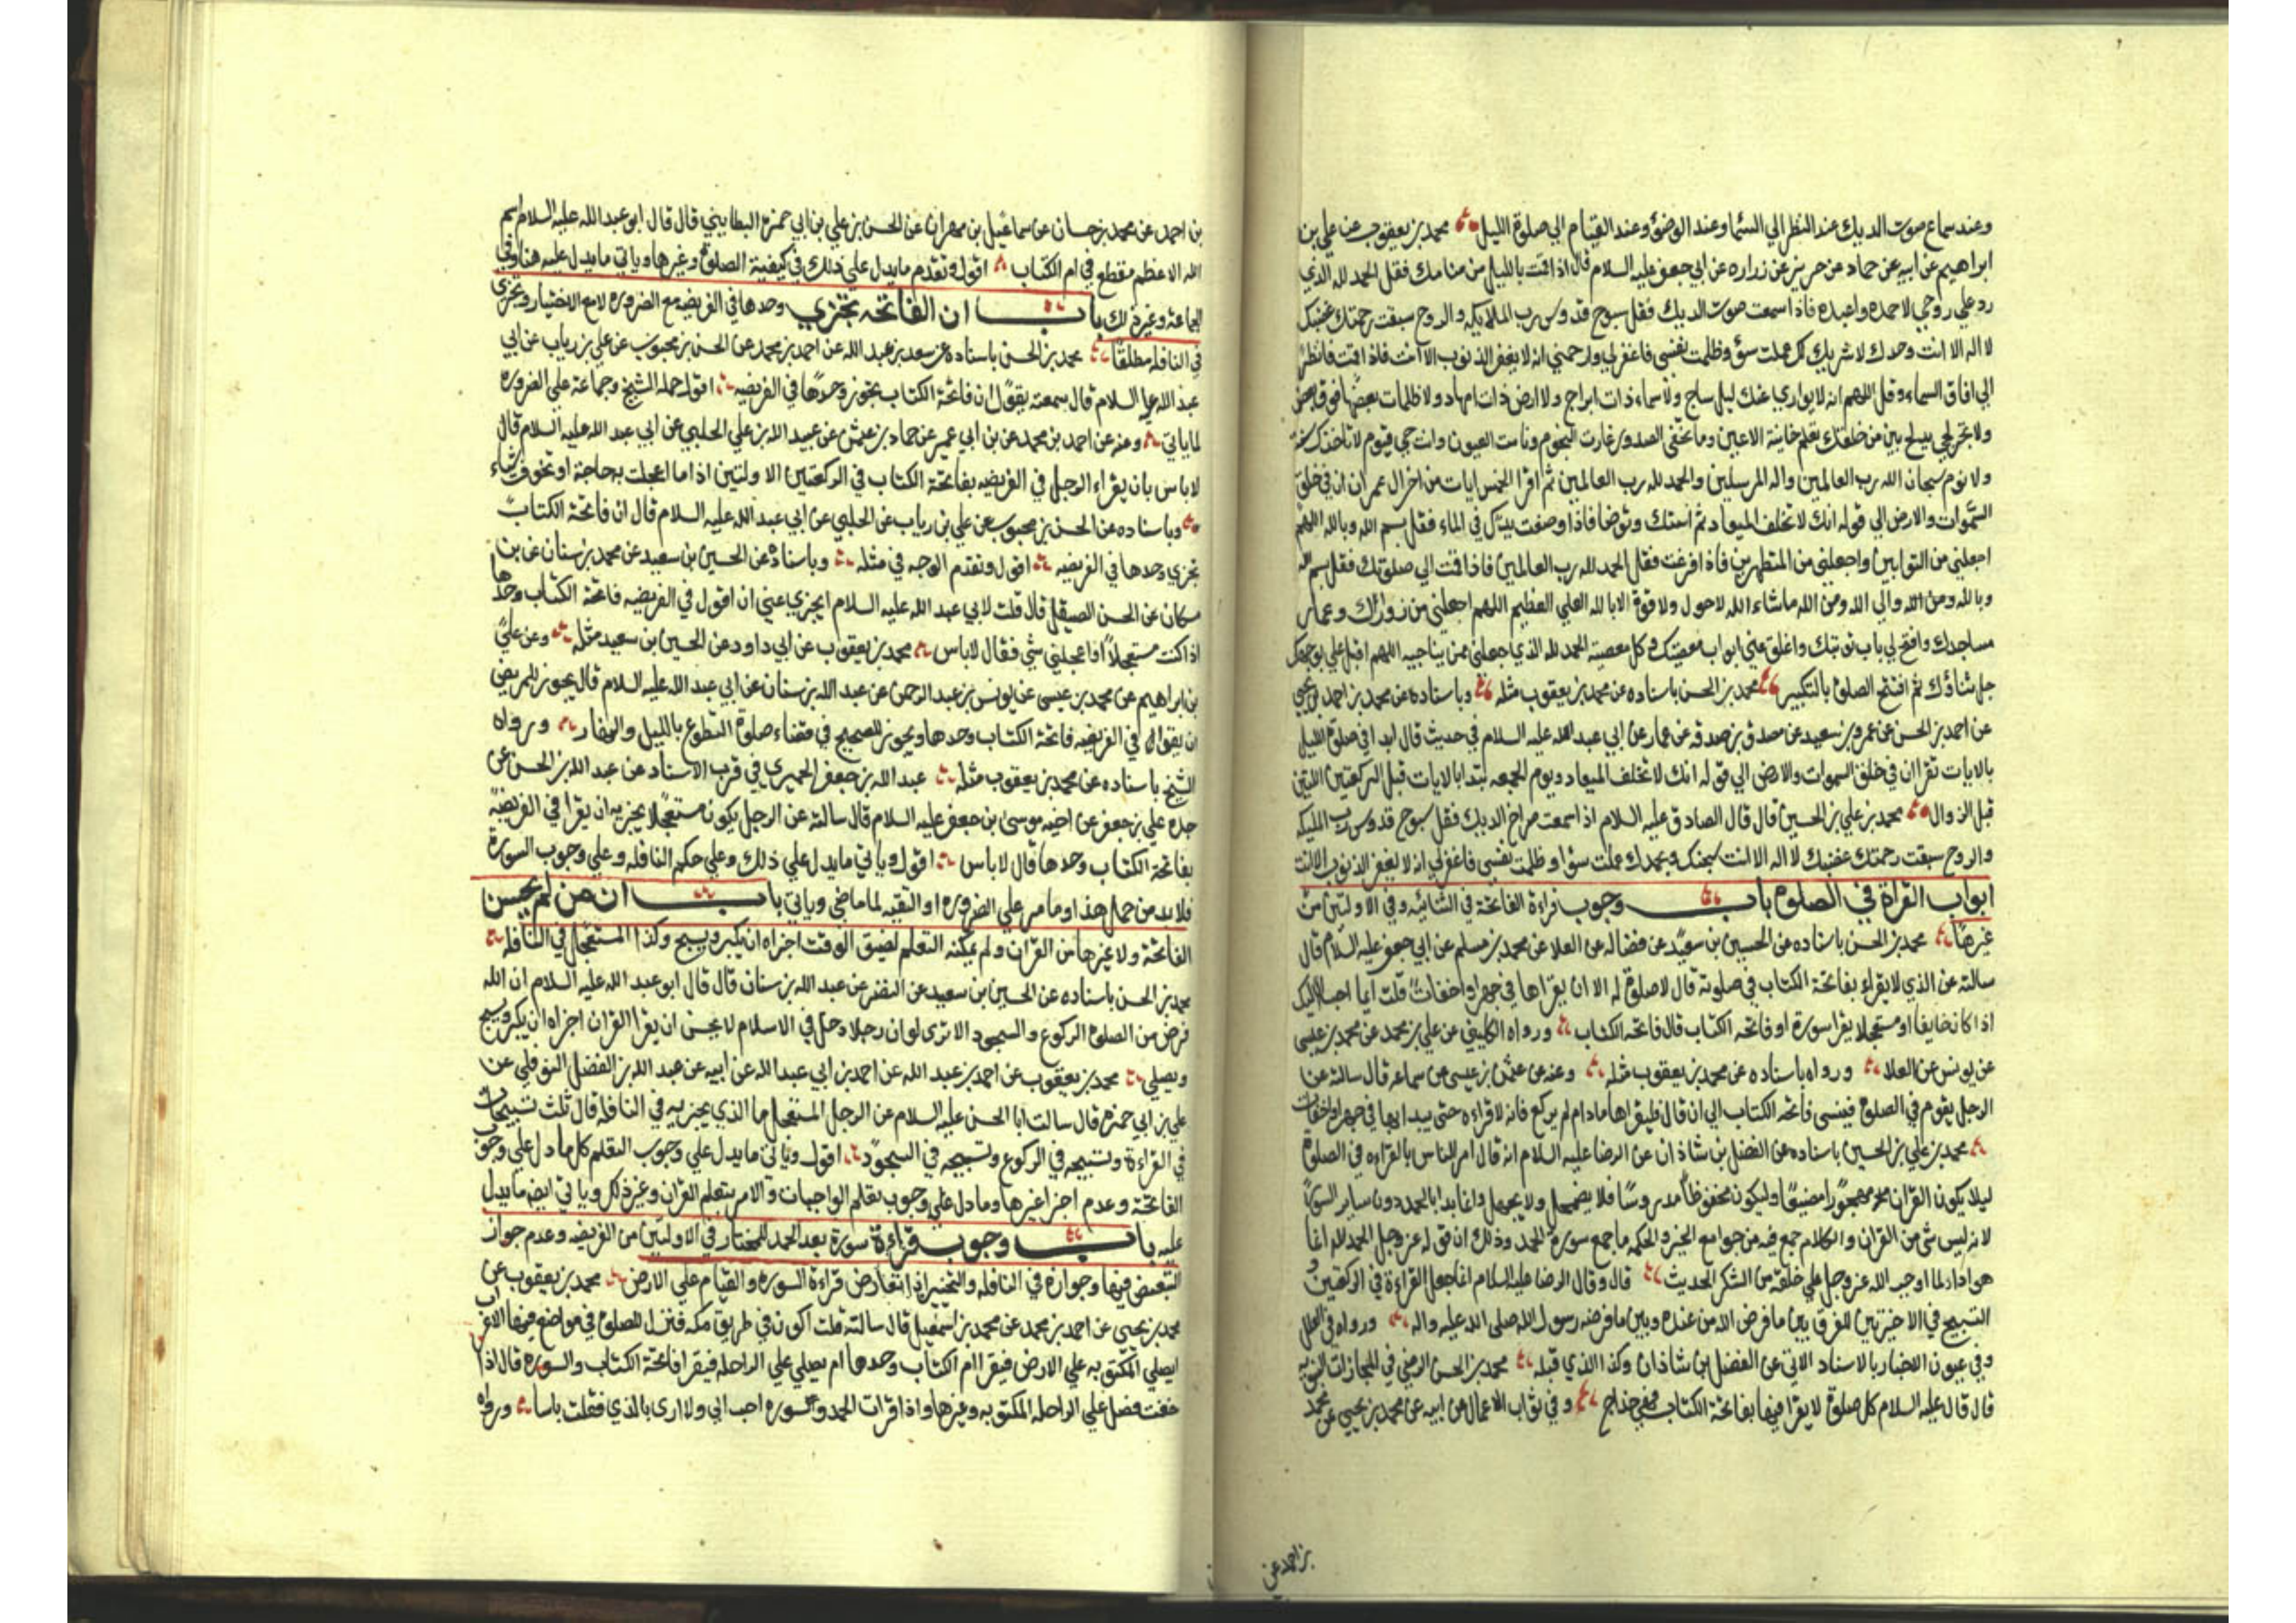 وعند سماع صوت الديك عند النظر الي السما وعند الوضؤ وعند القيام الي صلوة الليل محمد بن يعقوب عن علي بن
ابراهيم عن ابيه عن حماد عن حريز عن زراره عن ابي جعفر عليه السلام قال اذا قمت بالليل من منامك فقل الحمد لله الذي
رد علي روحي لاحمده واعبده فاذا سمعت صوت الديك فقل سبوح قدوس رب الملايكه والروح سبقت رحمتك غضبك
لا اله الا انت وحدك لا شريك لك عملت سؤ وظلمت نفسي فاغفر لي وارحمني انه لا يغفر الذنوب الا انت فاذا قمت فانظر
الي افاق السماء وقل اللهم انه لا يواري عنك ليل ساج ولا سماء ذات ابراج ولا ارض ذات مهاد ولا ظلمات بعضها فوق بعض
ولا بحر لجي يدلج بين من خلقك تعلم خاينة الاعين وما تخفي الصدور غارت النجوم ونامت العيون وانت حي قيوم لا تاخذك سنة
ولا نوم سبحان الله رب العالمين واله المرسلين والحمد لله رب العالمين ثم اقرا الخمس ايات من اخر ال عمران ان في خلق
السموات والارض الي قوله انك لا تخلف الميعاد ثم استك وتوضا فاذا وضعت يدك في الماء فقل بسم الله وبالله اللهم
اجعلني من التوابين واجعلني من المتطهرين فاذا فرغت فقل الحمد لله رب العالمين فاذا قمت الي صلوتك فقل بسم الله
وبالله ومن الله والي الله ومن الله ماشاء الله لاحول ولا قوة الا بالله العلي العظيم اللهم اجعلني من زوارك وعمار
مساجدك وافتح لي باب توبتك واغلق عني ابواب معصيتك وكل معصية الحمد لله الذي جعلني ممن يناجيه اللهم اقبل علي بوجهك
جل ثناؤك ثم افتتح الصلوة بالتكبير محمد بن الحسن باسناده عن محمد بن يعقوب مثله وباسناده عن محمد بن احمد بن يحيي
عن احمد بن الحسن عن عمرو بن سعيد عن مصدق بن صدقه عن عمار عن ابي عبد الله عليه السلام في حديث قال ابدا في صلوة الليل
بالايات تقرا ان في خلق السموات والارض الي قوله انك لا تخلف الميعاد ويوم الجمعه تبتدا بالايات قبل الركعتين اللتين
قبل الزوال محمد بن علي بن الحسين قال قال الصادق عليه السلام اذا سمعت صراخ الديك فقل سبوح قدوس رب المليكه
والروح سبقت رحمتك غضبك لا اله الا انت سبحنك وبحمدك عملت سؤا وظلمت نفسي فاغفر لي انه لا يغفر الذنوب الا انت
ابواب القراة في الصلوة باب وجوب قراءة الفاتحة في الثنائيه وفي الاولتين من
غيرها محمد بن الحسن باسناده عن الحسين بن سعيد عن فضاله عن العلا عن محمد بن مسلم عن ابي جعفر عليه السلام قال
سالته عن الذي لا يقراء بفاتحة الكتاب في صلوته قال لاصلوة له الا ان يقراها في جهر او اخفات قلت ايما احب اليك
اذا كان خايفا او مستعجلا يقرا سورة او فاتحه الكتاب قال فاتحه الكتاب ورواه الكليني عن علي بن محمد عن محمد بن عيسي
عن يونس عن العلا ورواه باسناده عن محمد بن يعقوب مثله وعنه عن عثمن بن عيسي عن سماعه قال سالته عن
الرجل يقوم في الصلوة فينسي فاتحه الكتاب الي ان قال فليقراها مادام لم يركع فانه لا قراءه حتي يبدا بها في جهر او اخفات
محمد بن علي بن الحسين باسناده عن الفضل بن شاذان عن الرضا عليه السلام انه قال امر الناس بالقراءه في الصلوة
ليلا يكون القران مهجورا مضيعا وليكون محفوظا مدروسا فلا يضمحل ولا يجهل وانما بدا بالحمد دون ساير السور
لانه ليس شي من القران والكلام جمع فيه من جوامع الخير والحكمه ما جمع سورة الحمد وذلك ان قوله عز وجل الحمد لله انما
هو ادا لما اوجب الله عز وجل علي خلقه من الشكر الحديث قال وقال الرضا عليه السلام انما جعل القراءة في الركعتين
التسبيح في الاخيرتين للفرق بين ما فرض الله من عنده وبين ما فرضه رسول الله صلى الله عليه واله ورواه في العلل
وفي عيون الاخبار بالاسناد الاتي عن الفضل بن شاذان وكذا الذي قبله محمد بن الحسن الرضي في المجازات النبويه
قال قال عليه السلام كل صلوة لا يقرا فيها بفاتحة الكتاب فهي خداج وفي ثواب الاعمال عن ابيه عن محمد بن يحيي عن محمد
بن احمد عن
بن احمد عن محمد بن حسان عن سماعيل بن مهران عن الحسن بن علي بن ابي حمزة البطايني قال قال ابو عبد الله عليه السلام اسم
الله الاعظم مقطع في ام الكتاب اقول وتقدم مايدل علي ذلك في كيفية الصلوة وغيرها وياتي مايدل عليه هنا وفي
الجماعة وغير ذلك باب ان الفاتحه تجتزي وحدها في الفريضه مع الضروره لامع الاختيار وتجزي
في النافله مطلقا محمد بن الحسن باسناده عن سعد بن عبد الله عن احمد بن محمد عن الحسن بن محبوب عن علي بن رياب عن ابي
عبد الله عليه السلام قال سمعته يقول ان فاتحة الكتاب تجوز وحدها في الفريضه اقول حمله الشيخ وجماعة علي الضروره
لما ياتي وعنه عن احمد بن محمد عن بن ابي عمير عن حماد بن عثمن عن عبيد الله بن علي الحلبي عن ابي عبد الله عليه السلام قال
لاباس بان يقراء الرجل في الفريضه بفاتحة الكتاب في الركعتين الاولتين اذا ما اعجلت به حاجة او تخوف شياء
وباسناده عن الحسن بن محبوب عن علي بن رياب عن الحلبي عن ابي عبد الله عليه السلام قال ان فاتحة الكتاب
تجزي وحدها في الفريضه اقول وتقدم الوجه في مثله وباسناده عن الحسين بن سعيد عن محمد بن سنان عن بن
مسكان عن الحسن الصيقل قال قلت لابي عبد الله عليه السلام ايجزي عني ان اقول في الفريضه فاتحة الكتاب وحدها
اذا كنت مستعجلا او اعجلني شي فقال لاباس محمد بن يعقوب عن ابي داود عن الحسين بن سعيد مثله وعن علي
بن ابراهيم عن محمد بن عيسي عن يونس بن عبد الرحمن عن عبد الله بن سنان عن ابي عبد الله عليه السلام قال يجوز للمريض
ان يقرا في الفريضه فاتحة الكتاب وحدها ويجوز للصحيح في قضاء صلوة التطوع بالليل والنهار ورواه
الشيخ باسناده عن محمد بن يعقوب مثله عبد الله بن جعفر الحميري في قرب الاسناد عن عبد الله بن الحسن عن
جده علي بن جعفر عن اخيه موسى بن جعفر عليه السلام قال سالته عن الرجل يكون مستعجلا يجزيه ان يقرا في الفريضة
بفاتحة الكتاب وحدها قال لاباس اقول وياتي مايدل علي ذلك وعلي حكم النافله وعلي وجوب السورة
فلابد من حمل هذا وما مر علي الضروره او التقيه لما مضي وياتي باب ان من لم يحسن
الفاتحة ولا غيرها من القران ولم يمكنه التعلم لضيق الوقت اجزاه ان يكبر ويسبح وكذا المستعجل في النافله
محمد بن الحسن باسناده عن الحسين بن سعيد عن النضر عن عبد الله بن سنان قال قال ابو عبد الله عليه السلام ان الله
فرض من الصلوة الركوع والسجود الا ترى لو ان رجلا دخل في الاسلام لا يحسن ان يقرا القران اجزاه ان يكبر ويسبح
ويصلي محمد بن يعقوب عن احمد بن عبد الله عن احمد بن ابي عبد الله عن ابيه عن عبد الله بن الفضل النوفلي عن
علي بن ابي حمزه قال سالت ابا الحسن عليه السلام عن الرجل المستعجل ما الذي يجزيه في النافله قال ثلث تسبيحات
في القراءة وتسبيحه في الركوع وتسبيحه في السجود اقول وياتي مايدل علي وجوب التعلم كل ما دل علي وجوب
الفاتحة وعدم اجزا غيرها وما دل علي وجوب تعلم الواجبات والامر بتعلم القران وغير ذلك وياتي ايضا مايدل
عليه باب وجوب قراءة سورة بعد الحمد للمختار في الاولتين من الفريضه وعدم جواز
التبعيض فيها وجوازه في النافله والتخيير اذا تعارض قراءة السوره والقيام علي الارض محمد بن يعقوب عن
محمد بن يحيى عن احمد بن محمد عن محمد بن اسمعيل قال سالته قلت اكون في طريق مكه فننزل للصلوة في مواضع فيها الاعراب
ايصلي المكتوبه علي الارض فيقرا ام الكتاب وحدها ام يصلي علي الراحله فيقرا فاتحة الكتاب والسوره قال اذا
خفت فصل علي الراحله المكتوبه وغيرها واذا قرات الحمد وسوره احب الي ولا اري بالذي فعلت باسا ورواه